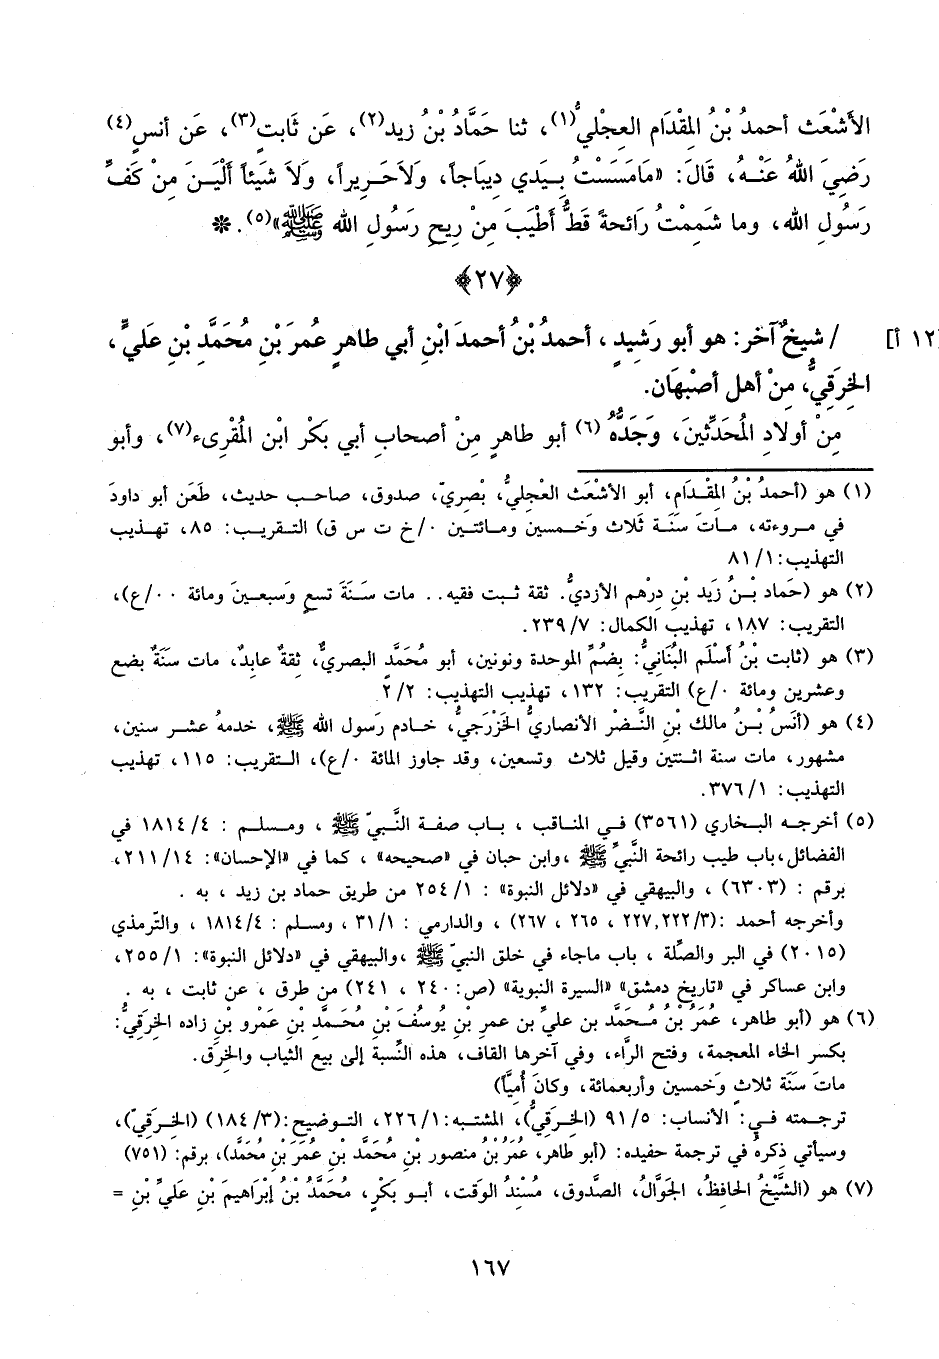 الأَشْعَث أحمدُ بْنُ المِقْدَام العِجْلي(١)، ثنا حَمَّادُ بْنُ زيد(٢)، عَن ثَابتٍ(٣)، عَن أنسٍ(٤)
رَضِيَ اللهُ عَنْهُ، قَالَ: «مَامَسَسْتُ بِيَدي ديباجاً، ولاَحَرِيراً، وَلاَ شَيئاً أَلْيَنَ مِنْ كَفِّ
رَسُولِ الله، وما شَمِمْتُ رَائحةً قَطُّ أَطْيَبَ مِنْ رِيحِ رَسُولِ الله ﷺ»(٥). *
﴿٢٧﴾
/ شيخٌ آخر: هو أبو رَشيدٍ، أحمدُ بْنُ أحمدَ ابْنِ أبي طاهرٍ عُمرَ بْنِ مُحَمَّدِ بْنِ عَليٍّ، [١٢ أ]
الخِرَقِيُّ، مِنْ أهل أصْبهَان.
مِنْ أولادِ المُحَدِّثينَ، وَجَدُّهُ (٦) أبو طاهرٍ مِنْ أصحابِ أبي بَكْر ابْنِ المُقْرىء(٧)، وأبو
(١) هو (أحمدُ بْنُ المِقْدَامِ، أبو الأشْعَث العِجْليُّ، بْصريّ، صدوق، صاحب حديث، طَعَن أبو داودَ
في مروءته، مـاتَ سَنَة ثَلاث وَخَمسين ومـائتين ٠/خ ت س ق) التقريب: ٨٥، تهذيب
التهذيب: ١/ ٨١
(٢) هو (حَماد بْنُ زَيد بْنِ دِرْهم الأزديُّ. ثقة ثبت فقيه.. مات سَنَةَ تسعٍ وَسَبعينَ ومائة ٠٠/ع)،
التقريب: ١٨٧، تهذيب الكمال: ٧/ ٢٣٩.
(٣) هو (ثابت بْنُ أَسْلَم البُنَانِيُّ: بِضُمِّ الموحدة ونونين، أبو مُحَمَّدٍ البصريُّ، ثقةٌ عابدٌ، مات سَنَةَ بضع
وعشرين ومائة ٠/ع) التقريب: ١٣٢، تهذيب التهذيب: ٢/ ٢
(٤) هو (أنَسُ بْنُ مالك بْنِ النَّضْر الأنصاريُّ الخَزْرَجيُّ، خادم رَسول الله ﷺ، خدمهُ عشر سنين،
مشهور، مات سنة اثنتين وقيل ثلاث وتسعين، وقد جاوز المائة ٠/ع)، التقريب: ١١٥، تهذيب
التهذيب: ١/ ٣٧٦.
(٥) أخرجه البخاري (٣٥٦١) في المناقب ، باب صفة النَّبيّ ﷺ ، ومسلم : ٤/ ١٨١٤ في
الفضائل،باب طيب رائحة النَّبيِّ ﷺ ،وابن حبان في «صحيحه» ، كما في «الإحسان»: ١٤/ ٢١١،
برقم : (٦٣٠٣) ، والبيهقي في «دلائل النبوة» : ١/ ٢٥٤ من طريق حماد بن زيد ، به .
وأخرجه أحمد :(٣/ ٢٢٢,٢٢٧ ، ٢٦٥ ، ٢٦٧) ، والدارمي : ١/ ٣١، ومسلم : ٤/ ١٨١٤ ، والتِّرمذي
(٢٠١٥) في البر والصِّلة ، باب ماجاء في خلق النبيّ ﷺ ،والبيهقي في «دلائل النبوة»: ١/ ٢٥٥،
وابن عساكر في «تاريخ دمشق» «السيرة النبوية» (ص: ٢٤٠ ، ٢٤١) من طرق ، عن ثابت ، به .
(٦) هو (أبو طاهر، عُمرُ بْنُ مُحَمَّد بن عليِّ بن عمرِ بْنِ يُوسفَ بْنِ مُحَمَّدِ بْنِ عَمْرو بْنِ زاده الخِرَقيُّ:
بكسر الخاء المعجمة، وفتح الرَّاء، وفي آخرها القاف، هذه النِّسبة إلى بيع الثياب والخِرَق.
مات سَنَة ثلاثٍ وخمسين وأربعمائة، وكانَ أُمِيّاً)
ترجمته في: الأنساب: ٥/ ٩١ (الخِرَقيُّ)، المشتبه: ١/ ٢٢٦، التوضيح: (٣/ ١٨٤) (الخِرَقيّ)،
وسيأتي ذِكرهُ في ترجمة حفيده: (أبو طاهر، عمُرُ بْنُ منصور بْنِ مُحمَّد بْنِ عُمَرَ بْنِ مُحمَّد)، برقم: (٧٥١)
(٧) هو (الشَّيْخُ الحافظُ، الجَوَّالُ، الصَّدوق، مُسْنِدُ الوَقت، أبو بَكْرٍ، مُحَمَّدُ بْنُ إبْرَاهيمَ بْنِ عَليِّ بْنِ =
١٦٧